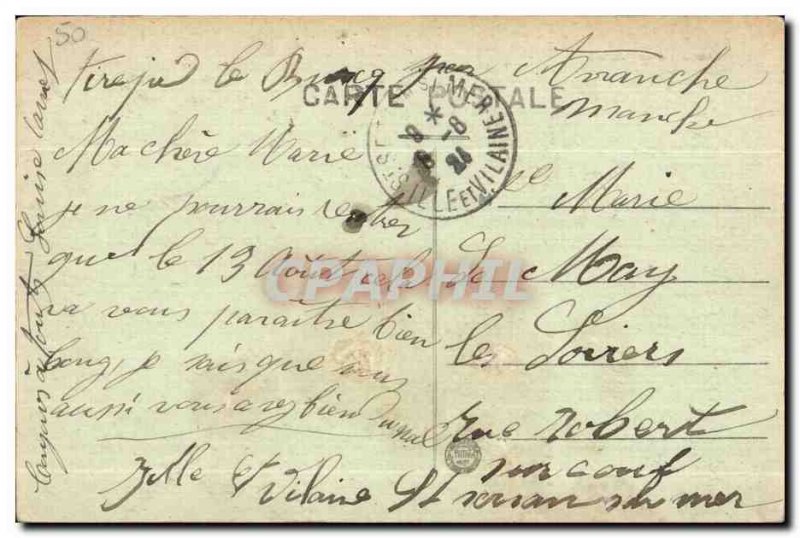 50
Tirepied le Bourg par Avranche
Manche
CARTE POSTALE
ST SERVAN S-MER ILLE ET VILAINE
8 -8
24
Ma chère Marie
je ne pourrais rentrer
que le 13 Août cela
va vous paraître bien
long, je sais que vous
aussi vous avez bien du mal
à tous Louise
Mlle Marie
Le May
les Loriers
rue Robert
surcouf
St servan sur mer
Ille et Vilaine
CPAPHIL